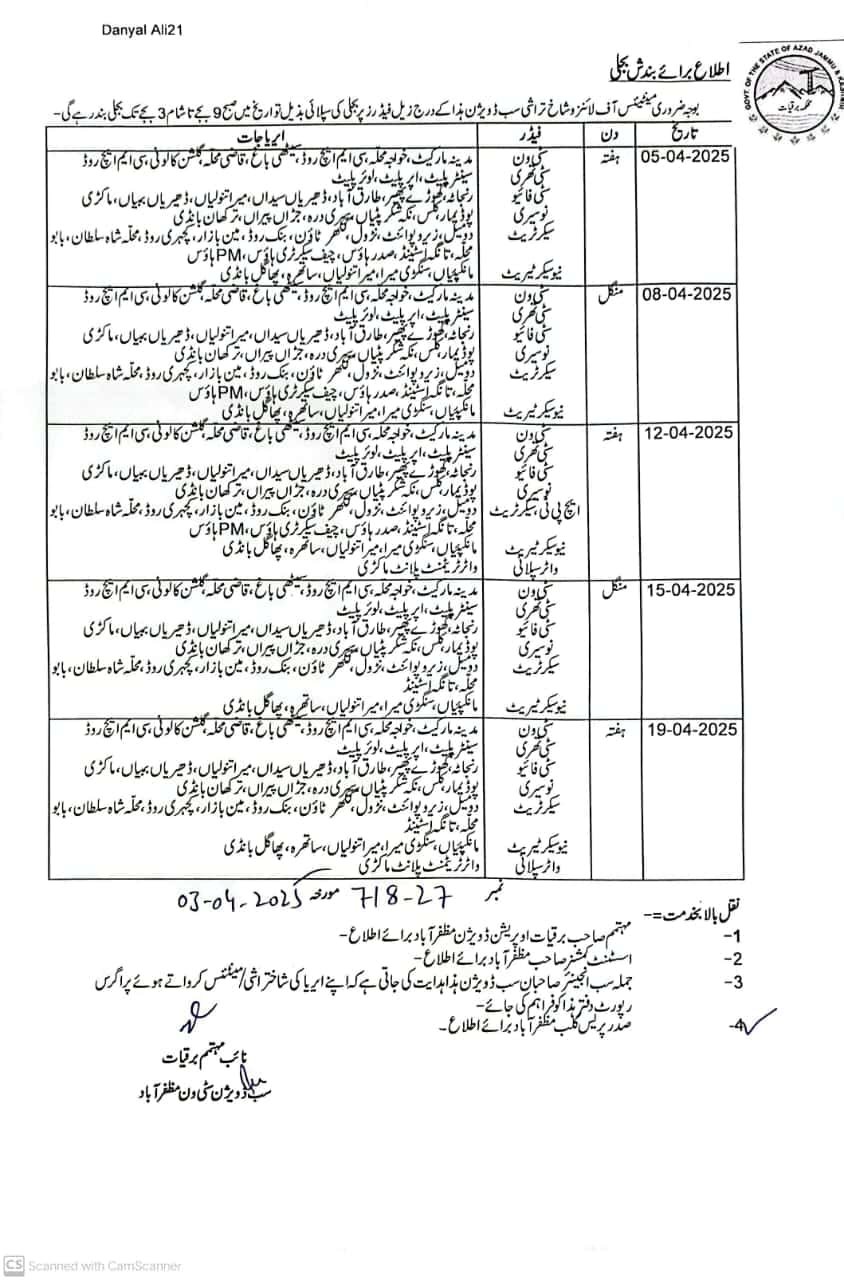 Danyal Ali21
GOVT OF THE STATE OF AZAD JAMMU & KASHMIR
محکمہ برقیات
اطلاع برائے بندش بجلی
بوجہ ضروری مینٹینس آف لائنز و شاخ تراشی سب ڈویژن ہذا کے درج زیل فیڈرز پر بجلی کی سپلائی بذیل تواریخ میں صبح 9 بجے تا شام 3 بجے تک بجلی بند رہے گی۔
تاریخ دن فیڈر ایریاجات
05-04-2025 ہفتہ سٹی ون مدینہ مارکیٹ، خواجہ محلہ، سی ایم ایچ روڈ، سیٹھی باغ، قاضی محلہ، گلشن کالونی، سی ایم ایچ روڈ
سٹی تھری سینٹر پلیٹ، اپر پلیٹ، لوئر پلیٹ
سٹی فائیو رنجاٹہ، گھوڑے پھیر، طارق آباد، ڈھیریاں سیداں، میرا تنولیاں، ڈھیریاں بمبیاں، ماکڑی
نوسیری پوڈیمار، کلس، نکہ شکر پٹیاں، سیری درہ، جڑاں پیراں، ترکھان بانڈی
سیکرٹریٹ دومیل، زیرو پوائنٹ، نڑول، گلھڑ ٹاؤن، بنک روڈ، مین بازار، کچہری روڈ، محلہ شاہ سلطان، بابو
محلہ، تانگہ اسٹینڈ، صدر ہاؤس، چیف سیکرٹری ہاؤس، PM ہاؤس
نیو سیکرٹیریٹ مانکپیاں، سنگڑی میرا، میرا تنولیاں، ساتھرہ، پھاگل بانڈی
08-04-2025 منگل سٹی ون مدینہ مارکیٹ، خواجہ محلہ، سی ایم ایچ روڈ، سیٹھی باغ، قاضی محلہ، گلشن کالونی، سی ایم ایچ روڈ
سٹی تھری سینٹر پلیٹ، اپر پلیٹ، لوئر پلیٹ
سٹی فائیو رنجاٹہ، گھوڑے پھیر، طارق آباد، ڈھیریاں سیداں، میرا تنولیاں، ڈھیریاں بمبیاں، ماکڑی
نوسیری پوڈیمار، کلس، نکہ شکر پٹیاں، سیری درہ، جڑاں پیراں، ترکھان بانڈی
سیکرٹریٹ دومیل، زیرو پوائنٹ، نڑول، گلھڑ ٹاؤن، بنک روڈ، مین بازار، کچہری روڈ، محلہ شاہ سلطان، بابو
محلہ، تانگہ اسٹینڈ، صدر ہاؤس، چیف سیکرٹری ہاؤس، PM ہاؤس
نیو سیکرٹیریٹ مانکپیاں، سنگڑی میرا، میرا تنولیاں، ساتھرہ، پھاگل بانڈی
12-04-2025 ہفتہ سٹی ون مدینہ مارکیٹ، خواجہ محلہ، سی ایم ایچ روڈ، سیٹھی باغ، قاضی محلہ، گلشن کالونی، سی ایم ایچ روڈ
سٹی تھری سینٹر پلیٹ، اپر پلیٹ، لوئر پلیٹ
سٹی فائیو رنجاٹہ، گھوڑے پھیر، طارق آباد، ڈھیریاں سیداں، میرا تنولیاں، ڈھیریاں بمبیاں، ماکڑی
نوسیری پوڈیمار، کلس، نکہ شکر پٹیاں، سیری درہ، جڑاں پیراں، ترکھان بانڈی
ایچ پی ٹی، سیکرٹریٹ دومیل، زیرو پوائنٹ، نڑول، گلھڑ ٹاؤن، بنک روڈ، مین بازار، کچہری روڈ، محلہ شاہ سلطان، بابو
محلہ، تانگہ اسٹینڈ، صدر ہاؤس، چیف سیکرٹری ہاؤس، PM ہاؤس
نیو سیکرٹیریٹ مانکپیاں، سنگڑی میرا، میرا تنولیاں، ساتھرہ، پھاگل بانڈی
واٹر سپلائی واٹر ٹریٹمنٹ پلانٹ ماکڑی
15-04-2025 منگل سٹی ون مدینہ مارکیٹ، خواجہ محلہ، سی ایم ایچ روڈ، سیٹھی باغ، قاضی محلہ، گلشن کالونی، سی ایم ایچ روڈ
سٹی تھری سینٹر پلیٹ، اپر پلیٹ، لوئر پلیٹ
سٹی فائیو رنجاٹہ، گھوڑے پھیر، طارق آباد، ڈھیریاں سیداں، میرا تنولیاں، ڈھیریاں بمبیاں، ماکڑی
نوسیری پوڈیمار، کلس، نکہ شکر پٹیاں، سیری درہ، جڑاں پیراں، ترکھان بانڈی
سیکرٹریٹ دومیل، زیرو پوائنٹ، نڑول، گلھڑ ٹاؤن، بنک روڈ، مین بازار، کچہری روڈ، محلہ شاہ سلطان، بابو
محلہ، تانگہ اسٹینڈ
نیو سیکرٹیریٹ مانکپیاں، سنگڑی میرا، میرا تنولیاں، ساتھرہ، پھاگل بانڈی
19-04-2025 ہفتہ سٹی ون مدینہ مارکیٹ، خواجہ محلہ، سی ایم ایچ روڈ، سیٹھی باغ، قاضی محلہ، گلشن کالونی، سی ایم ایچ روڈ
سٹی تھری سینٹر پلیٹ، اپر پلیٹ، لوئر پلیٹ
سٹی فائیو رنجاٹہ، گھوڑے پھیر، طارق آباد، ڈھیریاں سیداں، میرا تنولیاں، ڈھیریاں بمبیاں، ماکڑی
نوسیری پوڈیمار، کلس، نکہ شکر پٹیاں، سیری درہ، جڑاں پیراں، ترکھان بانڈی
سیکرٹریٹ دومیل، زیرو پوائنٹ، نڑول، گلھڑ ٹاؤن، بنک روڈ، مین بازار، کچہری روڈ، محلہ شاہ سلطان، بابو
محلہ، تانگہ اسٹینڈ
نیو سیکرٹیریٹ مانکپیاں، سنگڑی میرا، میرا تنولیاں، ساتھرہ، پھاگل بانڈی
واٹر سپلائی واٹر ٹریٹمنٹ پلانٹ ماکڑی
نمبر 718-27 مورخہ 03-04-2025
نقل بالا بخدمت=-
1- مہتمم صاحب برقیات اوپریشن ڈویژن مظفرآباد برائے اطلاع۔
2- اسسٹنٹ کمشنر صاحب مظفرآباد برائے اطلاع۔
3- جملہ سب انجینئر صاحبان سب ڈویژن ہذا ہدایت کی جاتی ہے کہ اپنے ایریا کی شاختراشی/مینٹینس کرواتے ہوئے پراگرس
رپورٹ دفتر ہذا کو فراہم کی جائے۔
4- صدر پریس کلب مظفرآباد برائے اطلاع۔
نائب مہتمم برقیات
سب ڈویژن سٹی ون مظفرآباد
CS Scanned with CamScanner